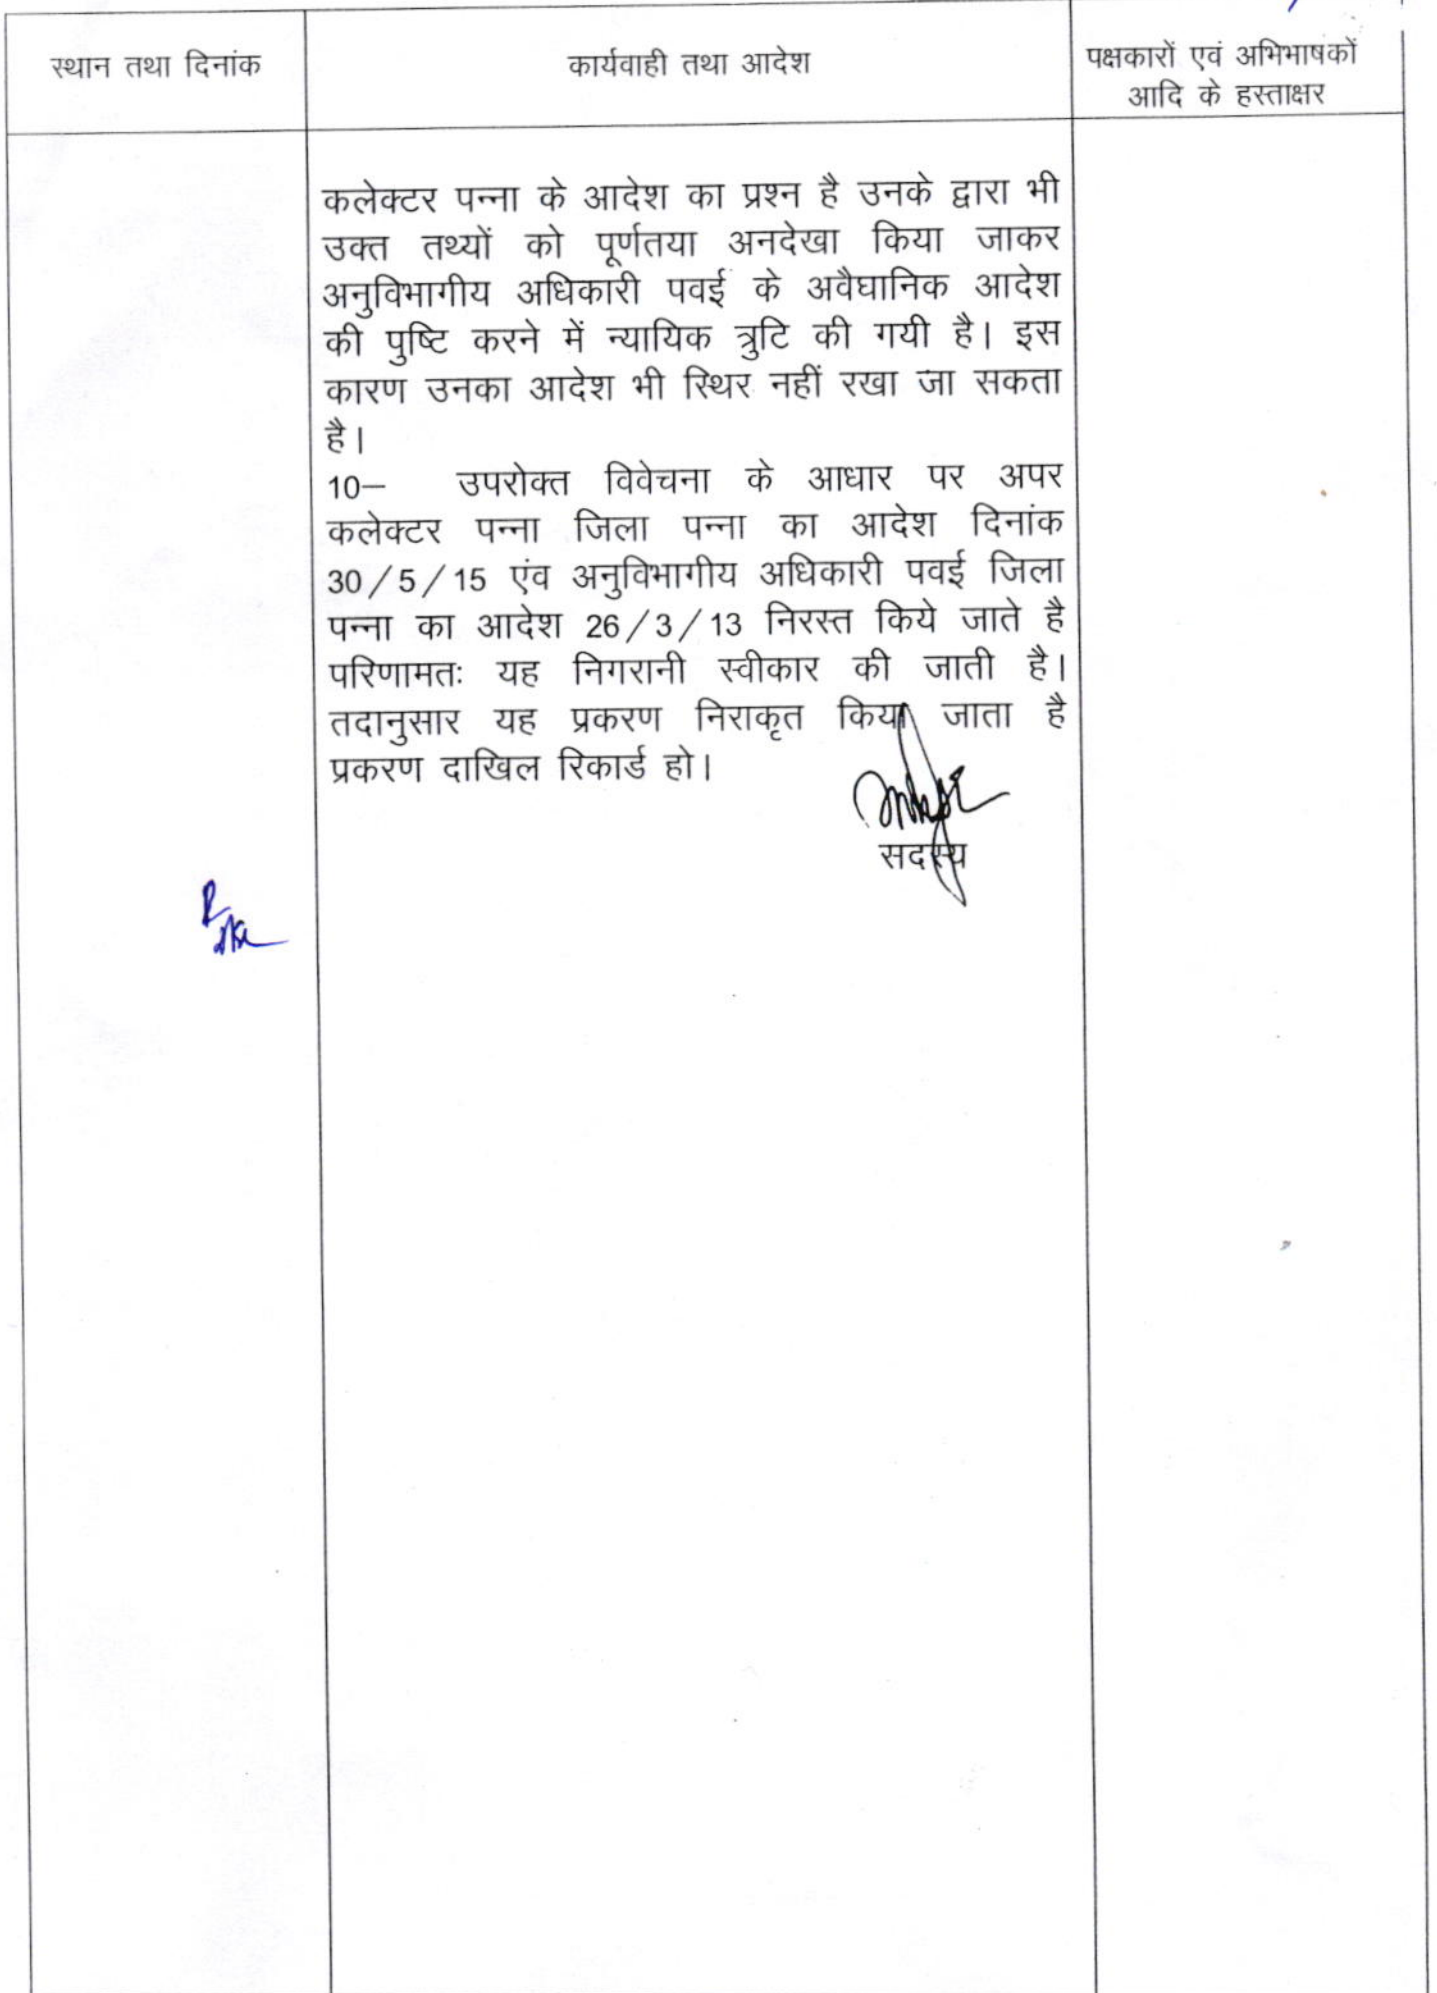 स्थान तथा दिनांक
कार्यवाही तथा आदेश
पक्षकारों एवं अभिभाषकों
आदि के हस्ताक्षर
कलेक्टर पन्ना के आदेश का प्रश्न है उनके द्वारा भी
उक्त तथ्यों को पूर्णतया अनदेखा किया जाकर
अनुविभागीय अधिकारी पवई के अवैघानिक आदेश
की पुष्टि करने में न्यायिक त्रुटि की गयी है। इस
कारण उनका आदेश भी स्थिर नहीं रखा जा सकता
है।
10– उपरोक्त विवेचना के आधार पर अपर
कलेक्टर पन्ना जिला पन्ना का आदेश दिनांक
30/5/15 एंव अनुविभागीय अधिकारी पवई जिला
पन्ना का आदेश 26/3/13 निरस्त किये जाते है
परिणामतः यह निगरानी स्वीकार की जाती है।
तदानुसार यह प्रकरण निराकृत किया जाता है
प्रकरण दाखिल रिकार्ड हो।
सदस्य